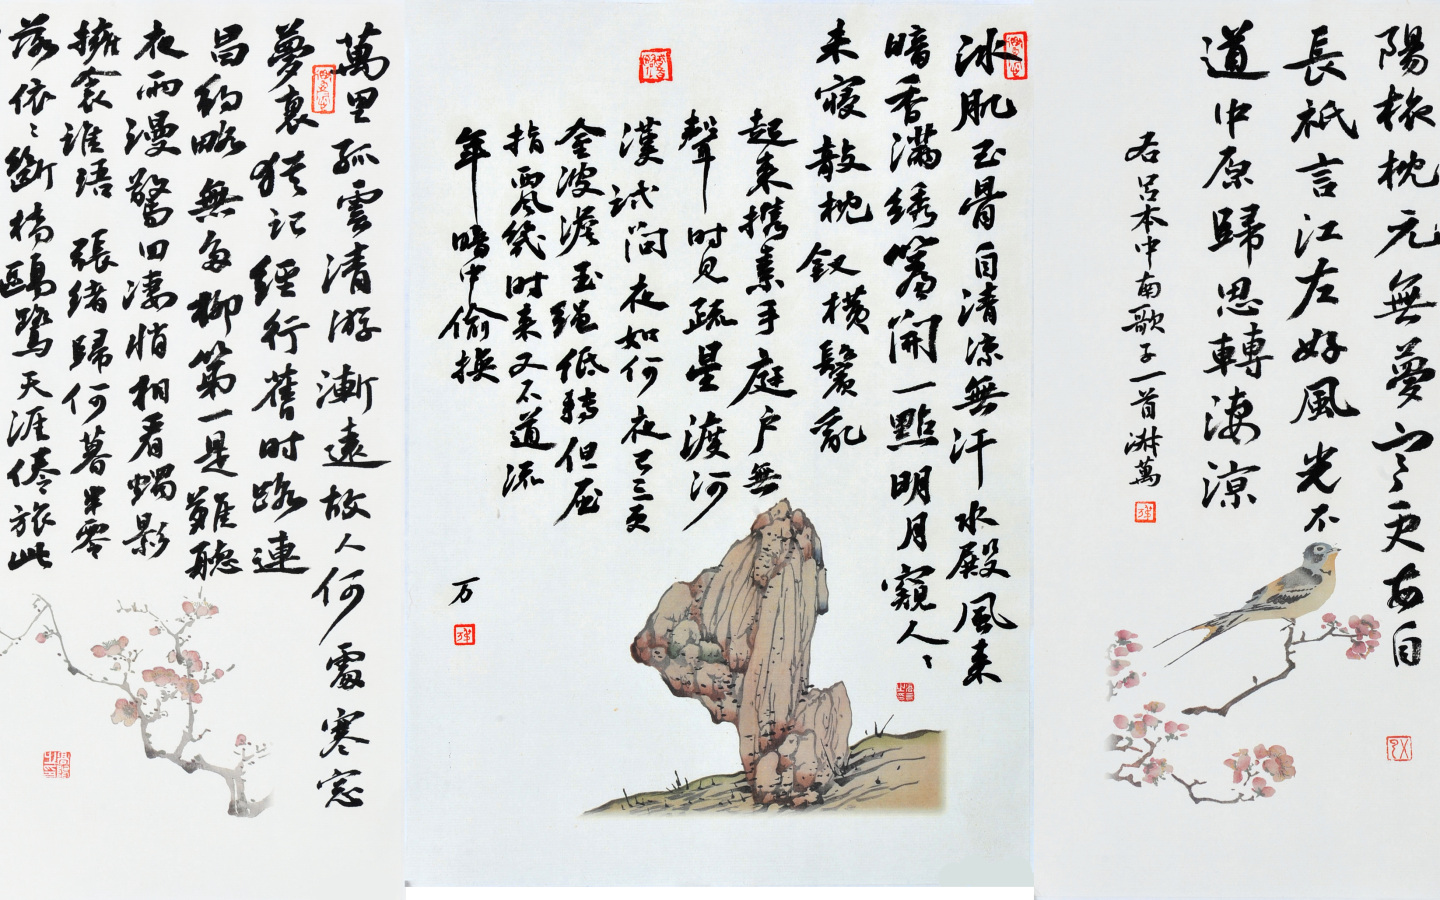 陽旅枕元無夢寒更每自
長祇言江左好風光不
道中原歸思轉淒涼
右呂本中南歌子一首
冰肌玉骨自清涼無汗水殿風來
暗香滿綉簾開一點明月窺人〻
未寢敧枕釵橫鬢亂
起來攜素手庭户無
聲時見疏星渡河
漢試問夜如何夜已三更
金波淡玉繩低轉但屈
指西風幾时來又不道流
年暗中偷換
万
萬里孤雲清游漸遠故人何處寒窗
夢裏猶記經行舊时路連
昌約略無多柳第一是難聽
夜雨漫驚回淒悄相看燭影
擁衾誰語張緒歸何暮半零
落依〻斷橋鷗鷺天涯倦旅此